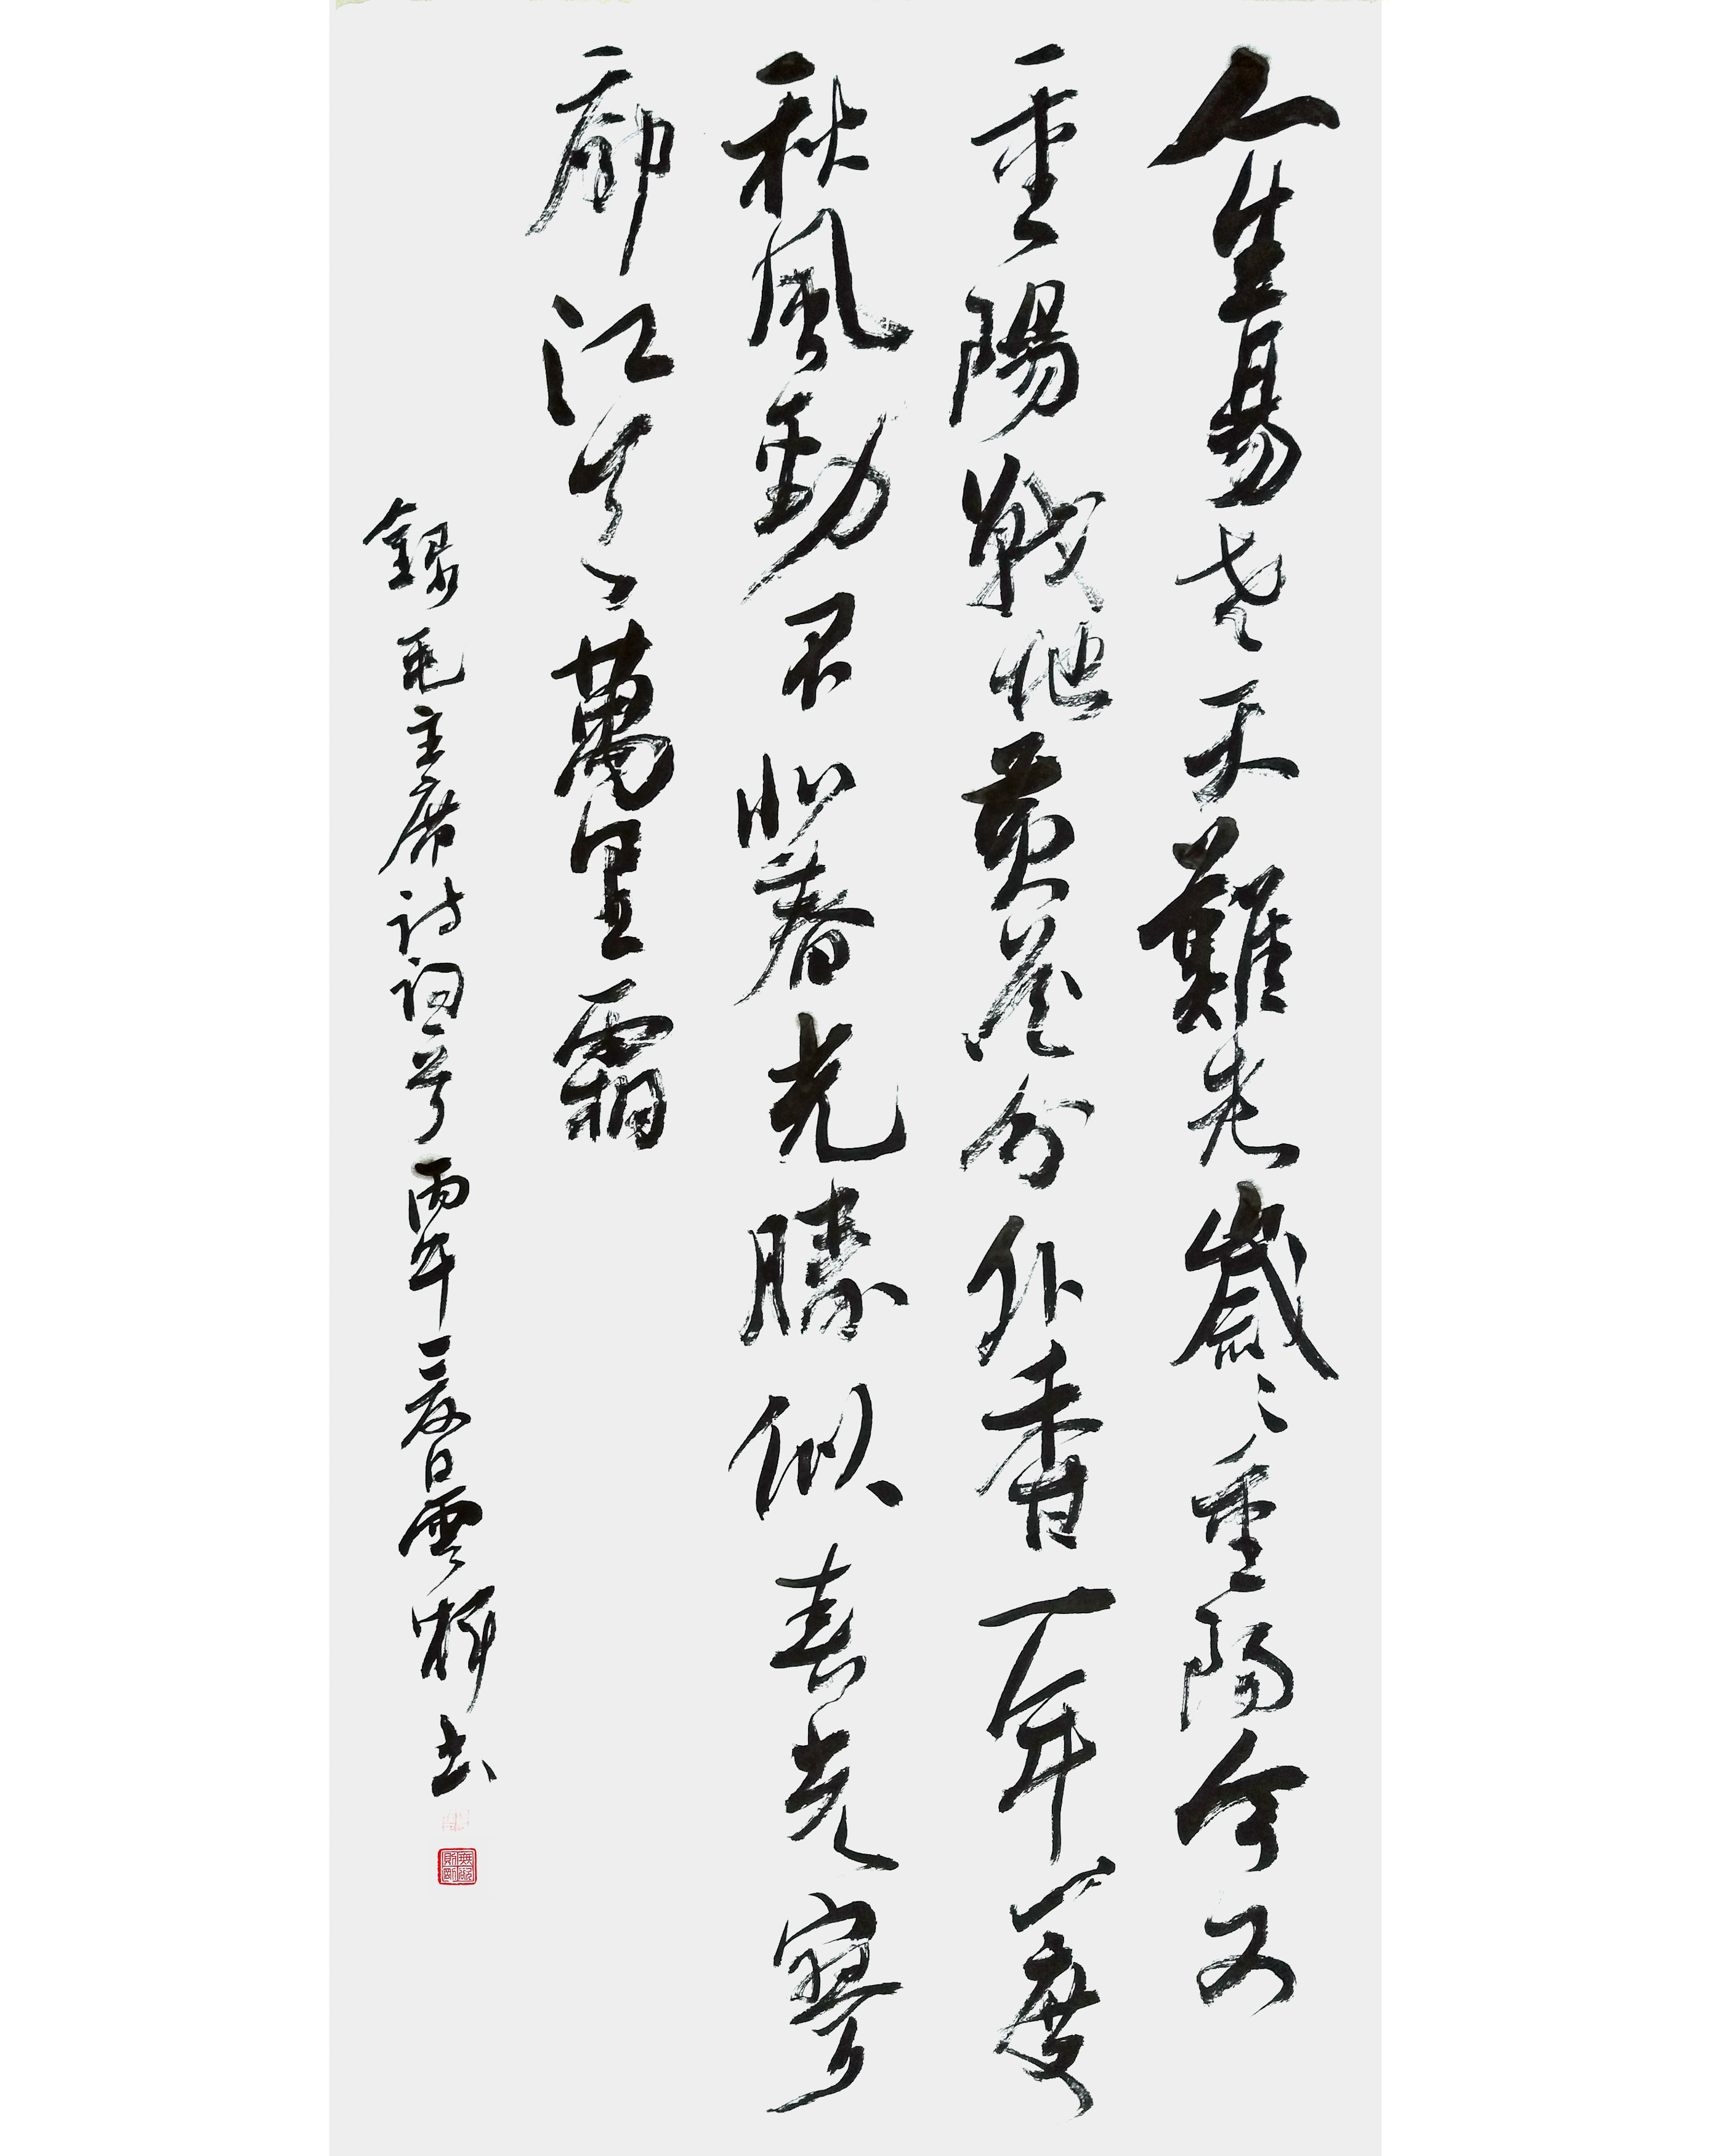 人生易老天難老歲〻重陽今又
重陽戰地黃花分外香一年一度
秋風勁不似春光勝似春光寥
廓江天萬里霜
錄毛主席詩詞一首丙午夏日雲書
無欲則剛